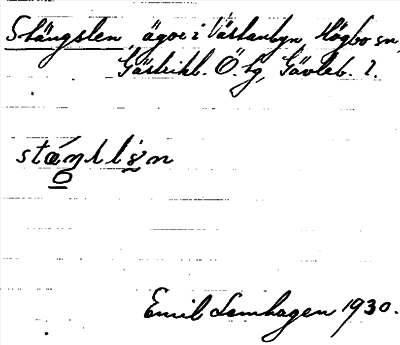 Stängslen ägor i Västanbyn Högbo sn,
Gästrikl. Ö. tg, Gävleb. l.
Emil Lamhagen 1930.